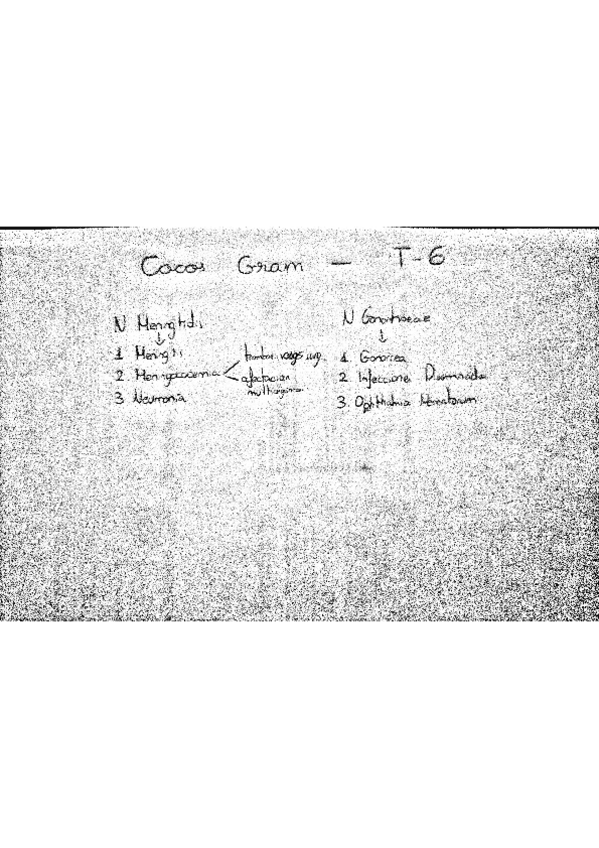 Cocos Gram — T-6
N Meningitidis
↓
1 Meningitis
2. Meningococemia
trombosi vasos sang.
afectación
multiorgánica
3 Neumonia
N Gonorrhoeae
↓
1. Gonorrea
2 Infecciones Diseminada
3. Ophthalmia Neonatorum